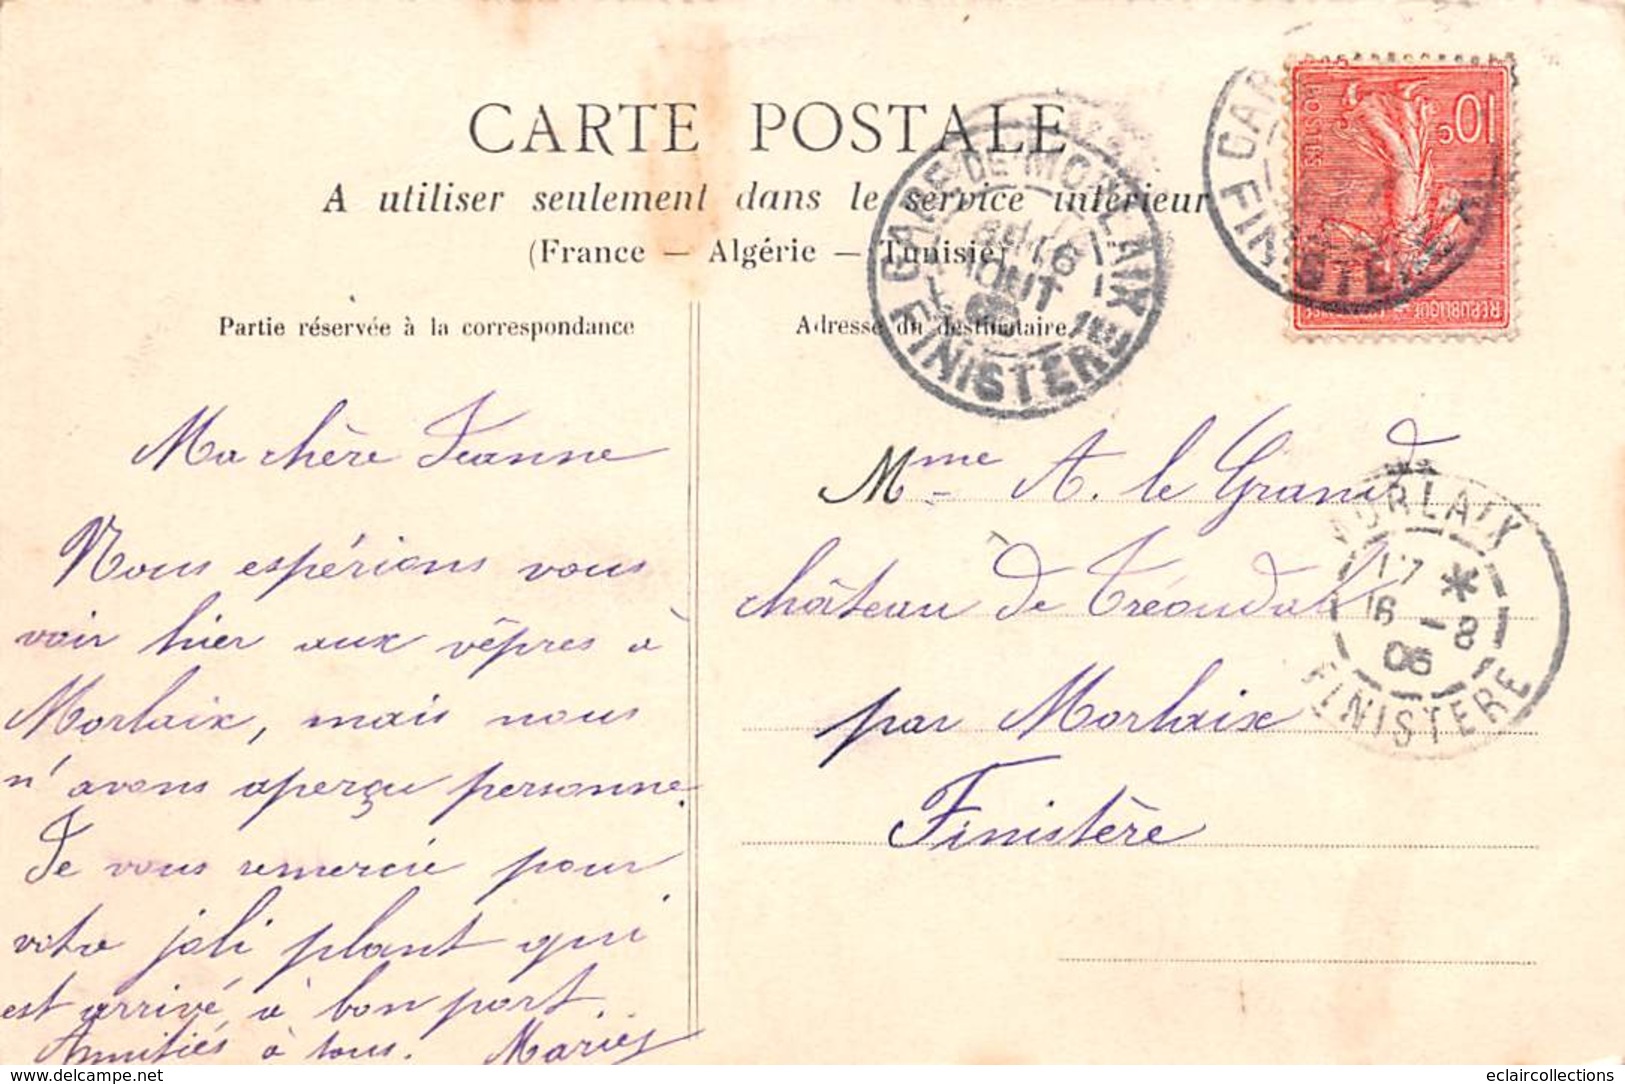 CARTE POSTALE
A utiliser seulement dans le service intérieur
(France — Algérie — Tunisie)
Partie réservée à la correspondance
Adresse du destinataire
GARE DE MORLAIX
16
AOUT
FINISTÈRE
GAR
FINISTÈRE
10c
POSTES
REPUBLIQUE
Ma chère Jeanne
Nous espérions vous
voir hier aux vêpres à
Morlaix, mais nous
n'avons aperçu personne.
Je vous remercie pour
votre joli plant qui
est arrivé à bon port.
Amitiés à tous. Marie
Mme A. le Grand
château de Tréoudal
par Morlaix
Finistère
MORLAIX
17 *
16 - 8
06
FINISTERE
delcampe.net
eclaircollections